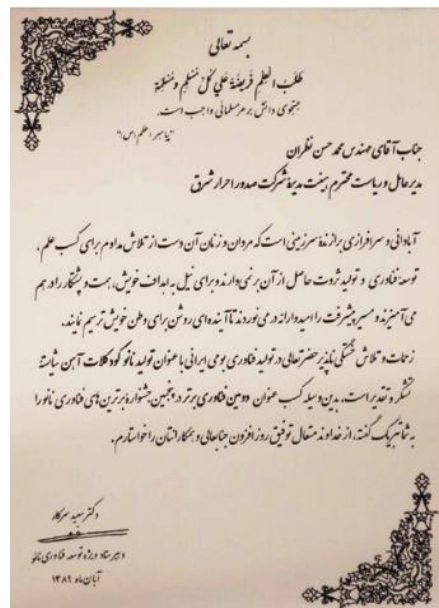 بسمه تعالی
طَلَبُ العِلمِ فَریضَةٌ عَلی کُلِّ مُسْلِمٍ وَ مُسْلِمَة
جستجوی دانش بر هر مسلمانی واجب است.
"پیامبر اعظم (ص)"
جناب آقای مهندس محمد حسن نظران
مدیر عامل و ریاست محترم هیئت مدیره شرکت صدور احرار شرق
آبادانی و سرافرازی برازنده سرزمینی است که مردان و زنان آن دست از تلاش مداوم برای کسب علم،
توسعه فناوری و تولید ثروت حاصل از آن برنمی دارند و برای نیل به اهداف خویش، همت و پشتکار را در هم
می آمیزند و مسیر پیشرفت را امیدوارانه در می نوردند تا آینده ای روشن برای وطن خویش ترسیم نمایند.
زحمات و تلاش خستگی ناپذیر حضرتعالی در تولید فناوری بومی ایرانی با عنوان تولید نانو کود کلات آهن شایسته
تشکر و تقدیر است. بدین وسیله کسب عنوان دومین فناوری برتر در پنجمین جشنواره برترین های فناوری نانو را
به شما تبریک گفته، از خداوند متعال توفیق روزافزون جنابعالی و همکارانتان را خواستارم.
دکتر سعید سرکار
دبیر ستاد ویژه توسعه فناوری نانو
آبان ماه ۱۳۸۹